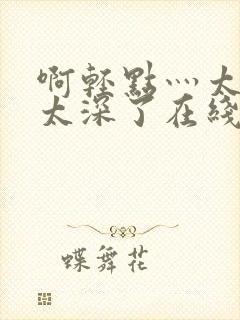 啊轻點灬太
太深了在綫
蝶舞花